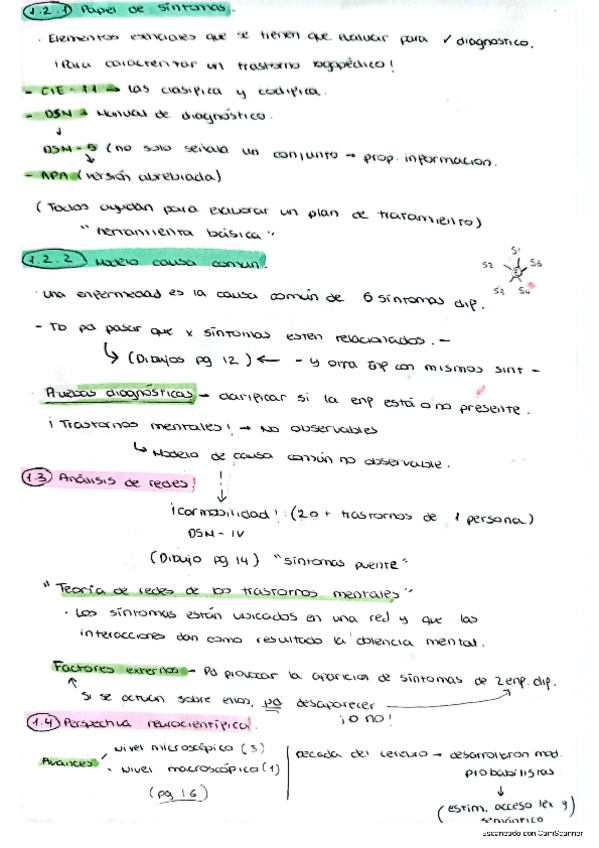 1.2.1 Papel de síntomas.
· Elementos esenciales que se tienen que evaluar para ✓ diagnostico.
¡Para caracterizar un trastorno logopédico!
- CIE-11 → las clasifica y codifica.
- DSM → Manual de diagnóstico.
↓
DSM-5 (no solo señala un conjunto → prop. informacion.
↓
- APA (versión abrebiada)
(Todos ayudan para elavorar un plan de tratamiento)
"herramienta básica"
1.2.2 Modelo causa comun!
S1
S2 E S5
S3 S4
· una enfermedad es la causa común de 6 síntomas dif.
- Tb pd pasar que x síntomas esten relacionados. -
↳ (Dibujos pg 12) ← - y otra enf con mismos sint -
· Pruebas diagnósticas → clarificar si la enf está o no presente.
¡Trastornos mentales! → No observables
↳ Modelo de causa común no observable.
1.3 Análisis de redes!
¡comorbilidad!: (2 o + trastornos de 1 persona)
DSM-IV
(Dibujo pg 14) "síntomas puente"
"Teoría de redes de los trastornos mentales"
· Los síntomas están ubicados en una red y que las
interacciones dan como resultado la dolencia mental.
Factores externos → Pd provocar la aparicion de síntomas de 2 enf. dif.
Si se actúan sobre ellos, pd desaparecer
¡o no!
1.4 Perspectiva neurocientífica!
Avances
· nivel microscópico (3)
· nivel macroscópico (1)
(pg 16)
Decada del cerebro → desarrollaron mod.
probabilistas
↓
(estim. acceso lex y
semántico
Escaneado con CamScanner